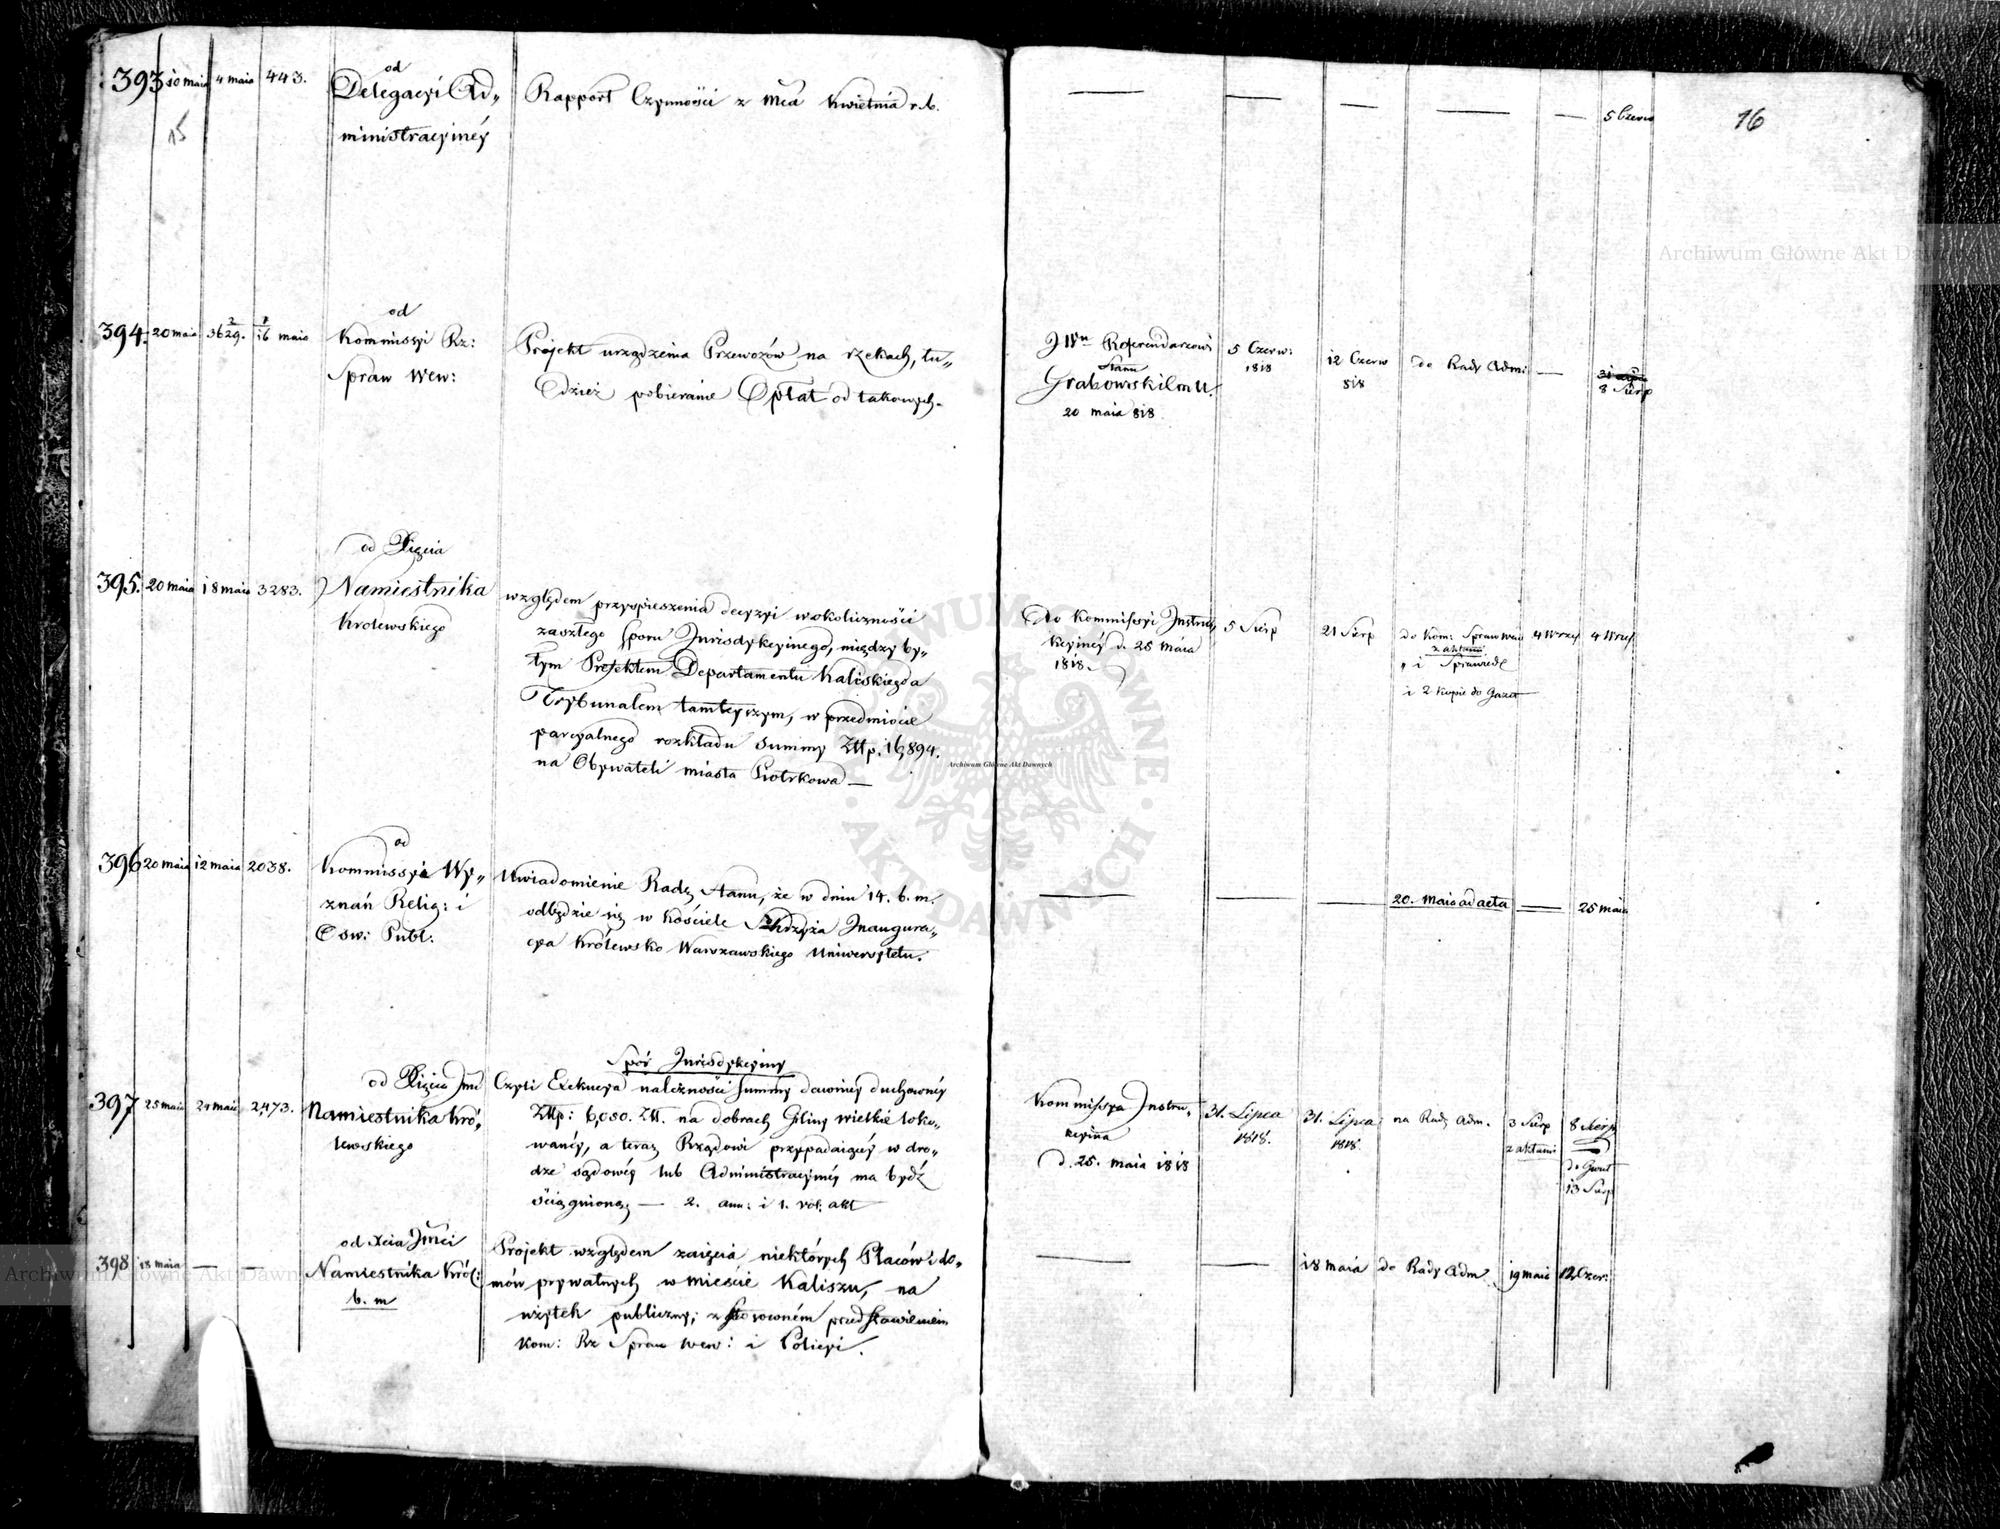 393 10 maia 4 maio 443. od
Delegacyi Ad„
ministracyinéy
Rapport Czynności z mca kwietnia r. b.
5 Czerw
15
16
394. 20 maia 3629. 16 maio od
Kommissyi Rz:
Spraw Wew:
Projekt urządzenia Przewozów na rzekach, tu„
dzież pobieranie Opłat od takowych.
JWu Referendarzowi
Stanu
Grabowskiemu.
20 maia 818
5 Czerw: 1818
12 Czerw 818
do Rady Admi
8 Sierp
395. 20 maia 18 maio 3283. od Xięcia
Namiestnika
Krolewskiego
względem przyspieszenia decyzyi w okoliczności
zaszłego sporu Jurisdykcyinego, między by„
łym Prefektem Departamentu Kaliskiego a
Trybunałem tamteyszym, w przedmiocie
parcyalnego rozkładu Summy Złlp. 16,894.
na Obywateli miasta Piotrkowa —
Do Kommissyi Instru„
kcyinéy d. 25 maia
1818.
5 Sierp
21 Sierp
do Kom: Spraw Wew
z aktami
„ i Sprawiedl
i 2 kopie do Gazet
4 Wrześ
4 Wrześ
396 20 maia 12 maia 2038. od
Kommissyi Wy„
znań Relig: i
Osw: Publ:
Uwiadomienie Rady Stanu, że w dniu 14. b. m.
odbędzie się w kościele S Krzyża Inaugura„
cya Królewsko Warszawskiego Uniwersytetu.
20. maia ad acta
25 maia
397 25 maia 24 maia 2,473. od Xięcia Jmci
Namiestnika Kró„
lewskiego
Spór Jurisdykcyiny
Czyli Exekucya należności Summy dawniey duchowney
Złlp: 6,080. Złl. na dobrach Gliny wielkie loko„
wanéy, a teraz Rządowi przypadaiącéy w dro„
dze sądowéy lub Administracyinéy ma bydź
ściągniona; — 2. ann: i 1. vol. akt
Kommissya Instru„
kcyina
d. 25. maia 1818
31. Lipca
1818.
31. Lipca
1818.
na Radę Adm.
3 Sierp
z aktami
8 Sierp
do Gazet
13 Sierp
398 18 maia — — od Xcia Jmci
Namiestnika Król:
b. m
Projekt względem zaięcia niektórych Placów i do„
mów prywatnych w mieście Kaliszu, na
użytek publiczny; z stosowném przedstawieniem
Kom: Rz Spraw Wew: i Policyi.
18 maia
do Rady Adm.
19 maia
12 Czer:
Archiwum Główne Akt Dawnych